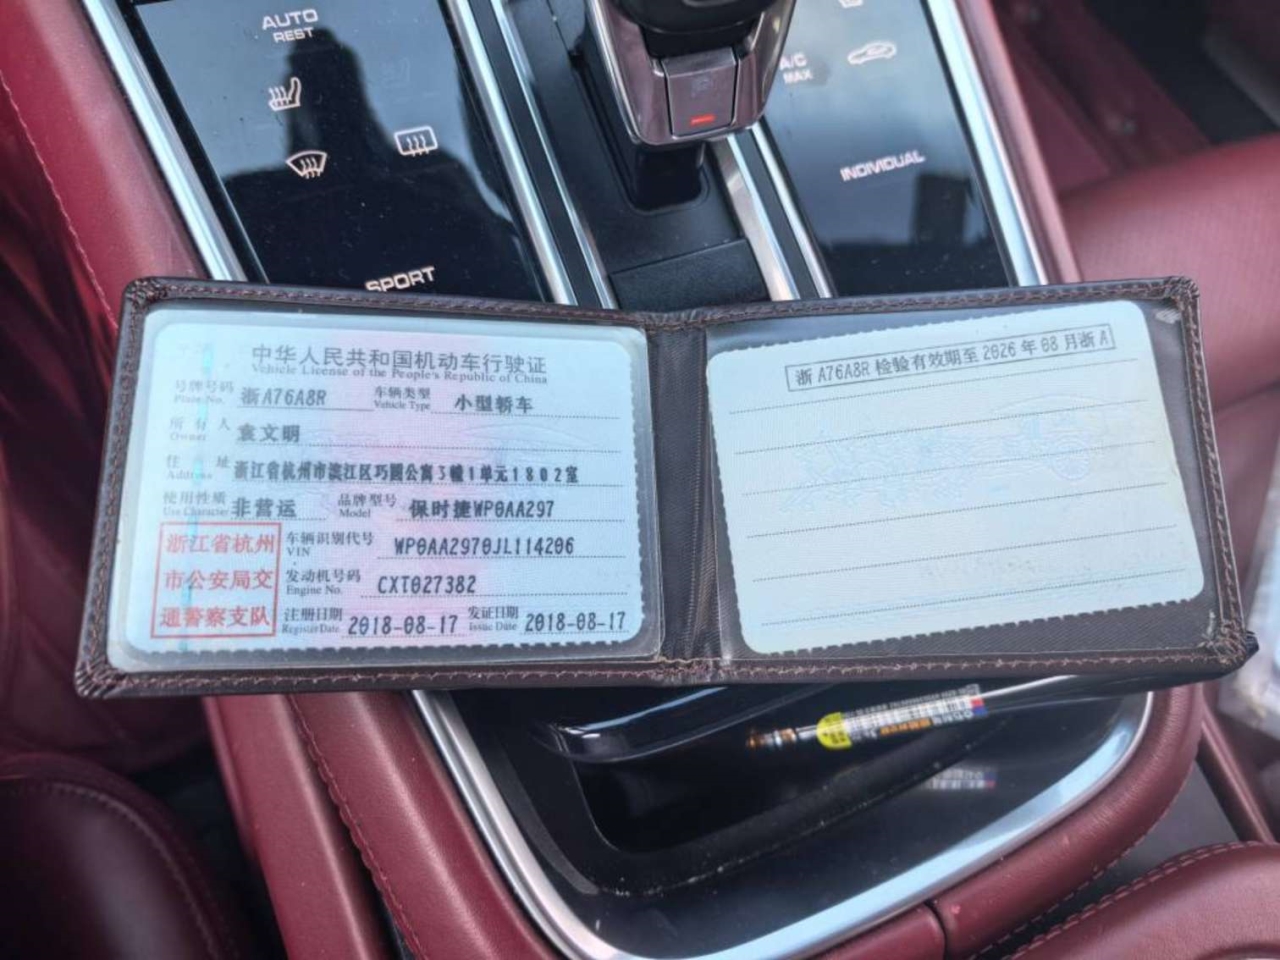 AUTO
REST
A/C
MAX
INDIVIDUAL
SPORT
中华人民共和国机动车行驶证
Vehicle License of the People's Republic of China
号牌号码 浙A76A8R 车辆类型 小型轿车
Plate No. Vehicle Type
所有人 袁文明
Owner
住址 浙江省杭州市滨江区巧园公寓3幢1单元1802室
Address
使用性质 非营运 品牌型号 保时捷WP0AA297
Use Character Model
浙江省杭州
市公安局交
通警察支队
车辆识别代号 WP0AA2970JL114206
VIN
发动机号码 CXT027382
Engine No.
注册日期 2018-08-17 发证日期 2018-08-17
Register Date Issue Date
浙A76A8R 检验有效期至2026年08月浙A